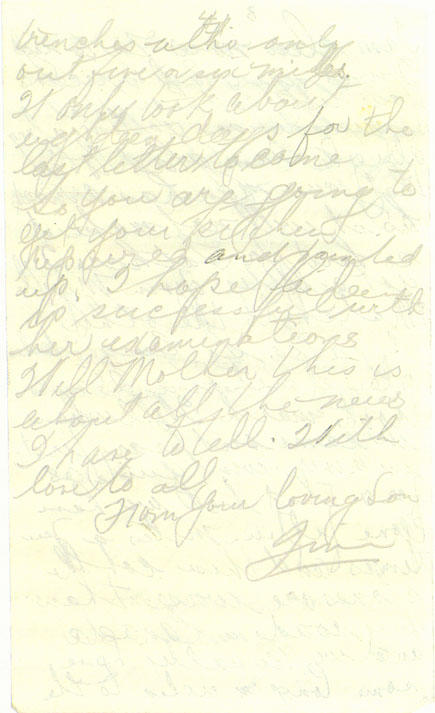 trenches altho only
out five or six miles.
It only took about
eighteen days for the
last letter to come
so you are going to
get your kitchen
repaired and painted
up. I hope
is successful with
her examinations
Well Mother this is
about all the news
I have to tell. With
love to all
From Your loving Son
Jim